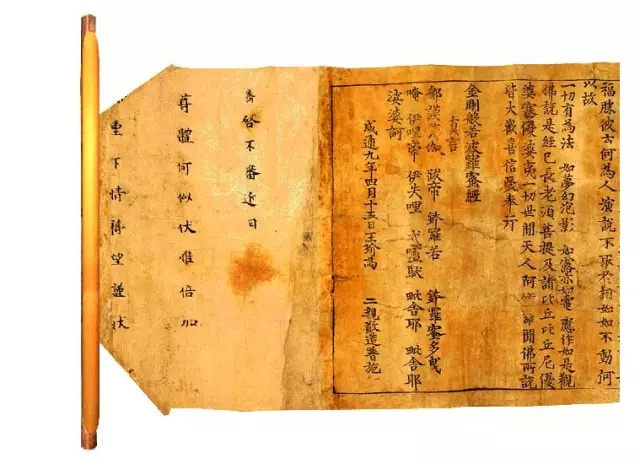 福勝彼云何為人演說不取於相如如不動何
以故
一切有為法 如夢幻泡影 如露亦如電 應作如是觀
佛說是經已長老須菩提及諸比丘比丘尼優
婆塞優婆夷一切世間天人阿修羅聞佛所說
皆大歡喜信受奉行
金剛般若波羅蜜經
真言
那謨婆伽 跋帝 鉢羅若 鉢羅蜜多曳
唵 伊哩帝 伊失哩 戍嚧馱 毗舍耶 毗舍耶
娑婆訶
咸通九年四月十五日王玠為 二親敬造普施
啓不審近日
尊體何似伏惟倍加
重下情禱望謹狀